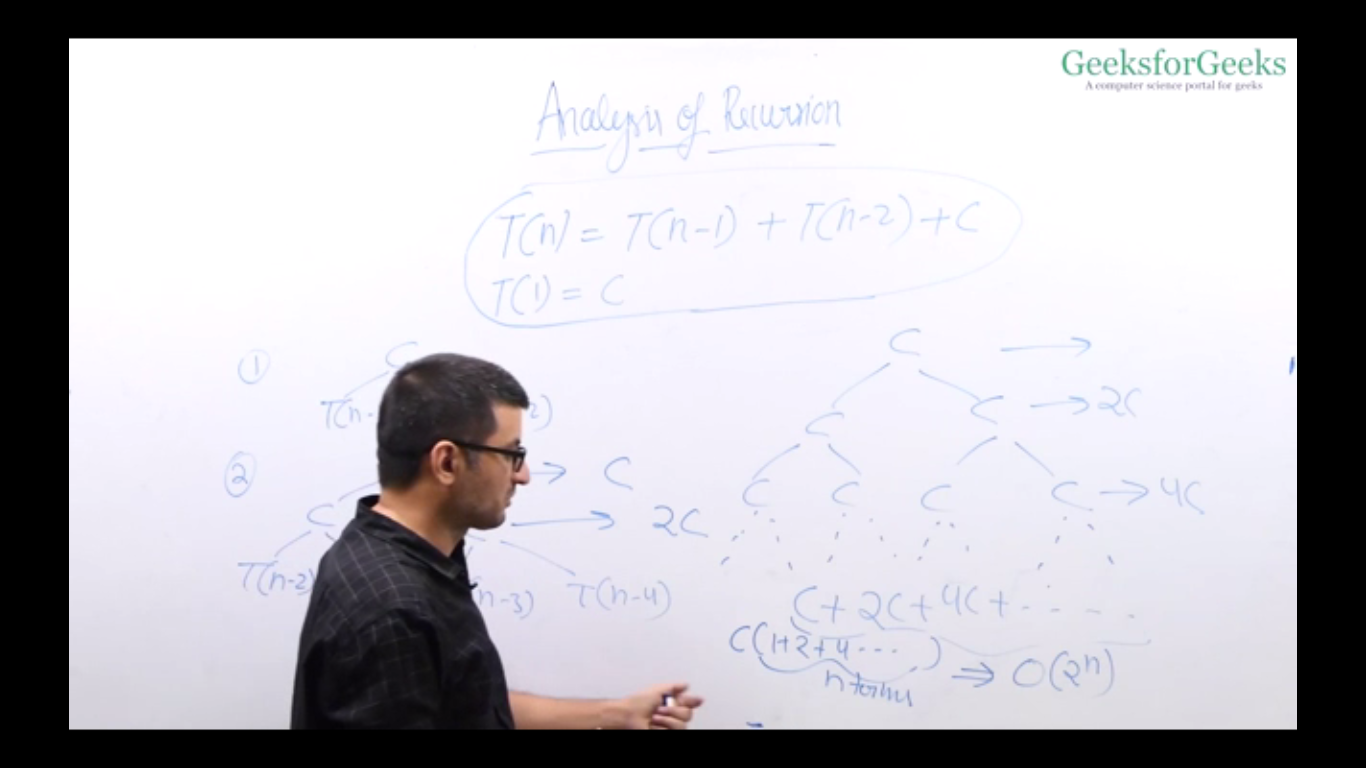 GeeksforGeeks
A computer science portal for geeks
Analysis of Recursion
T(n) = T(n-1) + T(n-2) + C
T(1) = C
① C
T(n- 2)
② → C
C → 2C
T(n-2) n-3) T(n-4)
C →
C C → 2C
C C C C → 4C
C + 2C + 4C + - - - -
C(1+2+4 ... ) ⇒ O(2ⁿ)
n terms